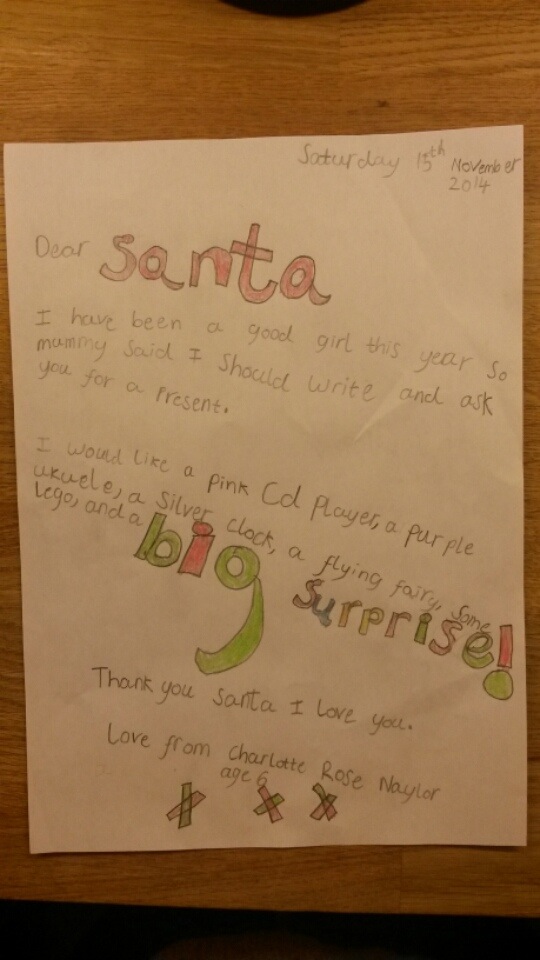 Saturday 15th November
2014
Dear Santa
I have been a good girl this year so
mummy said I should write and ask
you for a present.
I would like a pink Cd player, a purple
ukuele, a silver clock, a flying fairy, some
lego, and a big surprise!
Thank you santa I love you.
Love from Charlotte Rose Naylor
age 6
x x x